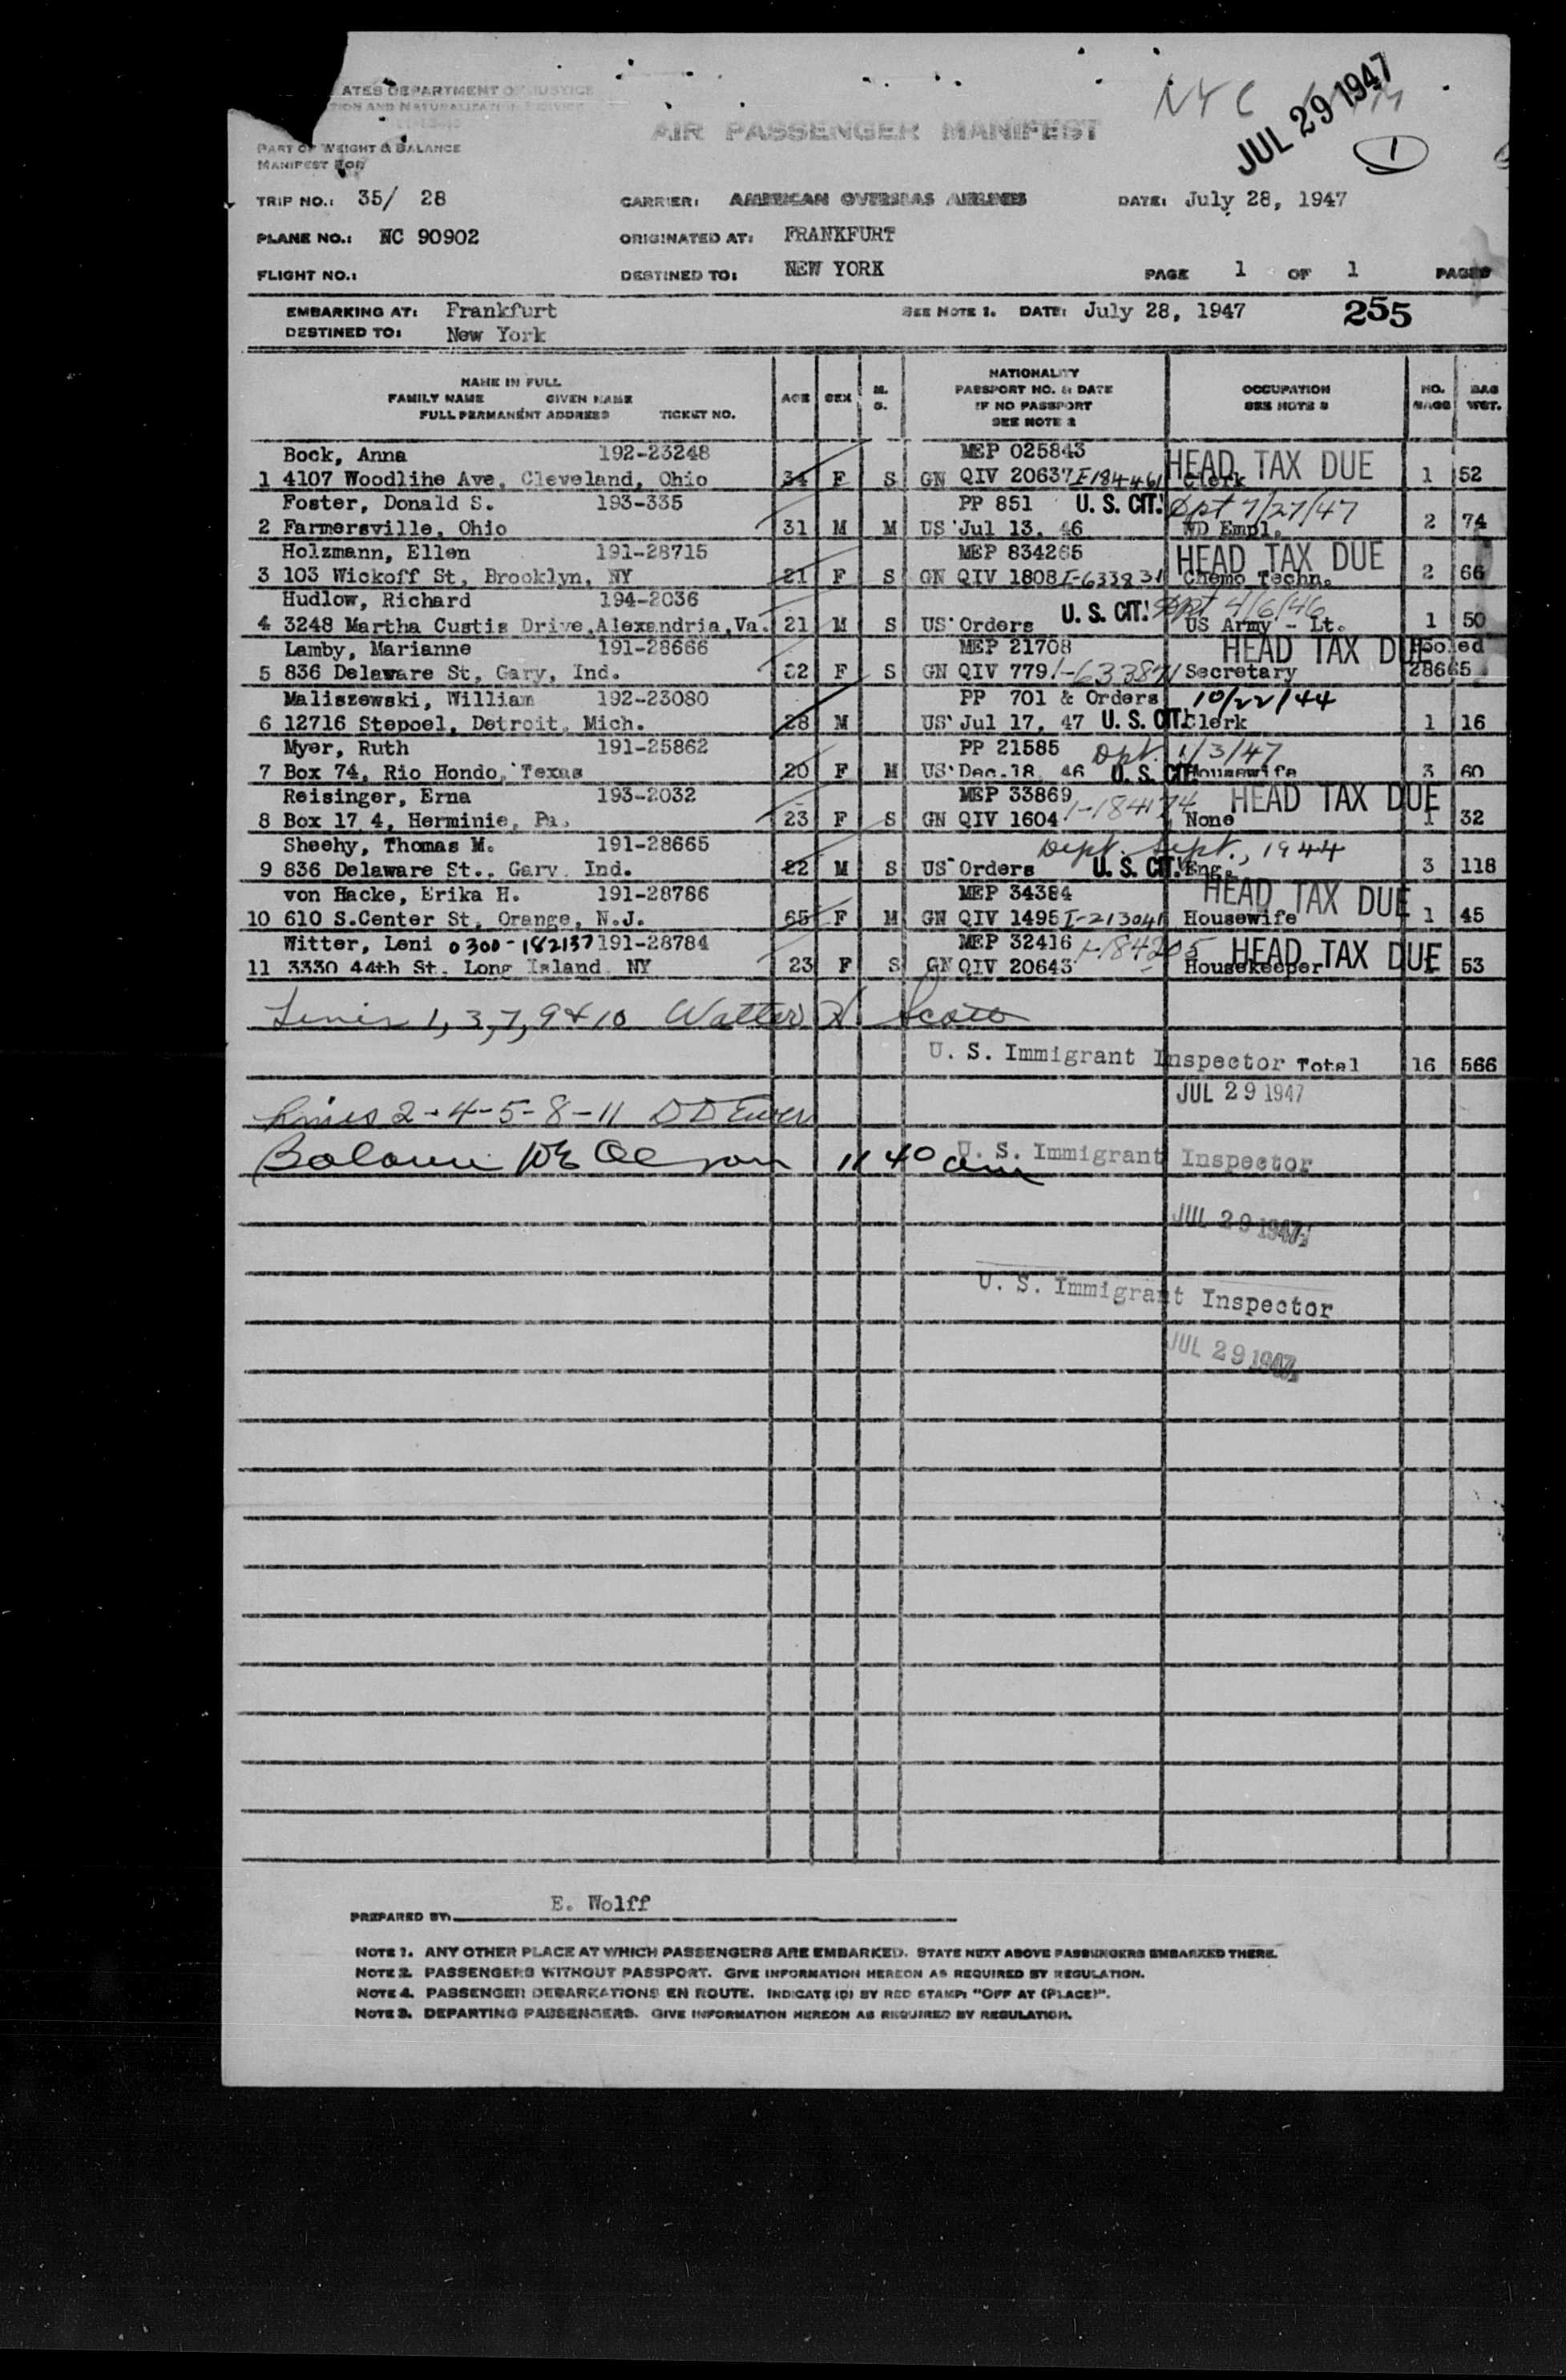 ATES DEPARTMENT OF JUSTICE
TION AND NATURALIZATION SERVICE
AIR PASSENGER MANIFEST
NYC
JUL 29 1947
1
PART OF WEIGHT & BALANCE
MANIFEST FOR
TRIP NO.: 35/ 28 CARRIER: AMERICAN OVERSEAS AIRLINES DATE: July 28, 1947
PLANE NO.: NC 90902 ORIGINATED AT: FRANKFURT
FLIGHT NO.: DESTINED TO: NEW YORK PAGE 1 OF 1 PAGES
EMBARKING AT: Frankfurt SEE NOTE 1. DATE: July 28, 1947 255
DESTINED TO: New York
NAME IN FULL
FAMILY NAME GIVEN NAME
FULL PERMANENT ADDRESS TICKET NO.
AGE SEX M. S.
NATIONALITY
PASSPORT NO. & DATE
IF NO PASSPORT
SEE NOTE 2
OCCUPATION
SEE NOTE 3
NO. BAGS
BAG WGT.
Bock, Anna 192-23248 MEP 025843 HEAD TAX DUE
1 4107 Woodlihe Ave, Cleveland, Ohio 34 F S GN QIV 20637 I-184461 Clerk 1 52
Foster, Donald S. 193-335 PP 851 U. S. CIT. Dpt 7/27/47
2 Farmersville, Ohio 31 M M US Jul 13, 46 WD Empl. 2 74
Holzmann, Ellen 191-28715 MEP 834265 HEAD TAX DUE
3 103 Wickoff St, Brooklyn, NY 21 F S GN QIV 1808 I-633831 Chemo Techn. 2 66
Hudlow, Richard 194-2036 U. S. CIT. Dpt 4/6/46
4 3248 Martha Custis Drive, Alexandria, Va. 21 M S US Orders US Army - Lt. 1 50
Lamby, Marianne 191-28666 MEP 21708 HEAD TAX DUE Pooled
5 836 Delaware St, Gary, Ind. 22 F S GN QIV 779 I-633871 Secretary 28665
Maliszewski, William 192-23080 PP 701 & Orders 10/22/44
6 12716 Stepoel, Detroit, Mich. 28 M US Jul 17, 47 U. S. CIT. Clerk 1 16
Myer, Ruth 191-25862 PP 21585 Dpt. 1/3/47
7 Box 74, Rio Hondo, Texas 20 F M US Dec.18, 46 U. S. CIT. Housewife 3 60
Reisinger, Erna 193-2032 MEP 33869 HEAD TAX DUE
8 Box 17 4, Herminie, Pa. 23 F S GN QIV 1604 I-184174 None 1 32
Sheehy, Thomas M. 191-28665 Dept. Sept., 1944
9 836 Delaware St., Gary, Ind. 22 M S US Orders U. S. CIT. Eng. 3 118
von Hacke, Erika H. 191-28786 MEP 34384 HEAD TAX DUE
10 610 S.Center St, Orange, N.J. 65 F M GN QIV 1495 I-213041 Housewife 1 45
Witter, Leni 0300-182137 191-28784 MEP 32416 I-184205 HEAD TAX DUE
11 3330 44th St. Long Island NY 23 F S GN QIV 20643 Housekeeper 53
Lines 1, 3, 7, 9 & 10 Walter Scott
U. S. Immigrant Inspector Total 16 566
JUL 29 1947
Lines 2-4-5-8-11
11 40 am
U. S. Immigrant Inspector
JUL 29 1947
U. S. Immigrant Inspector
JUL 29 1947
PREPARED BY: E. Wolff
NOTE 1. ANY OTHER PLACE AT WHICH PASSENGERS ARE EMBARKED. STATE NEXT ABOVE PASSENGERS EMBARKED THERE.
NOTE 2. PASSENGERS WITHOUT PASSPORT. GIVE INFORMATION HEREON AS REQUIRED BY REGULATION.
NOTE 4. PASSENGER DEBARKATIONS EN ROUTE. INDICATE (D) BY RED STAMP: "OFF AT (PLACE)".
NOTE 3. DEPARTING PASSENGERS. GIVE INFORMATION HEREON AS REQUIRED BY REGULATION.